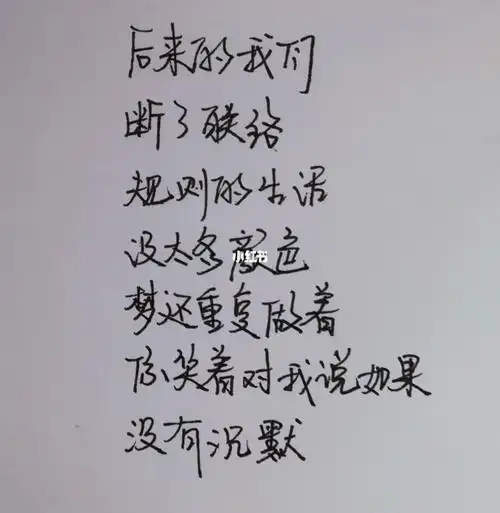 后来的我们
断了联络
规则的生活
没太多颜色
小红书
梦还重复做着
你笑着对我说如果
没有沉默